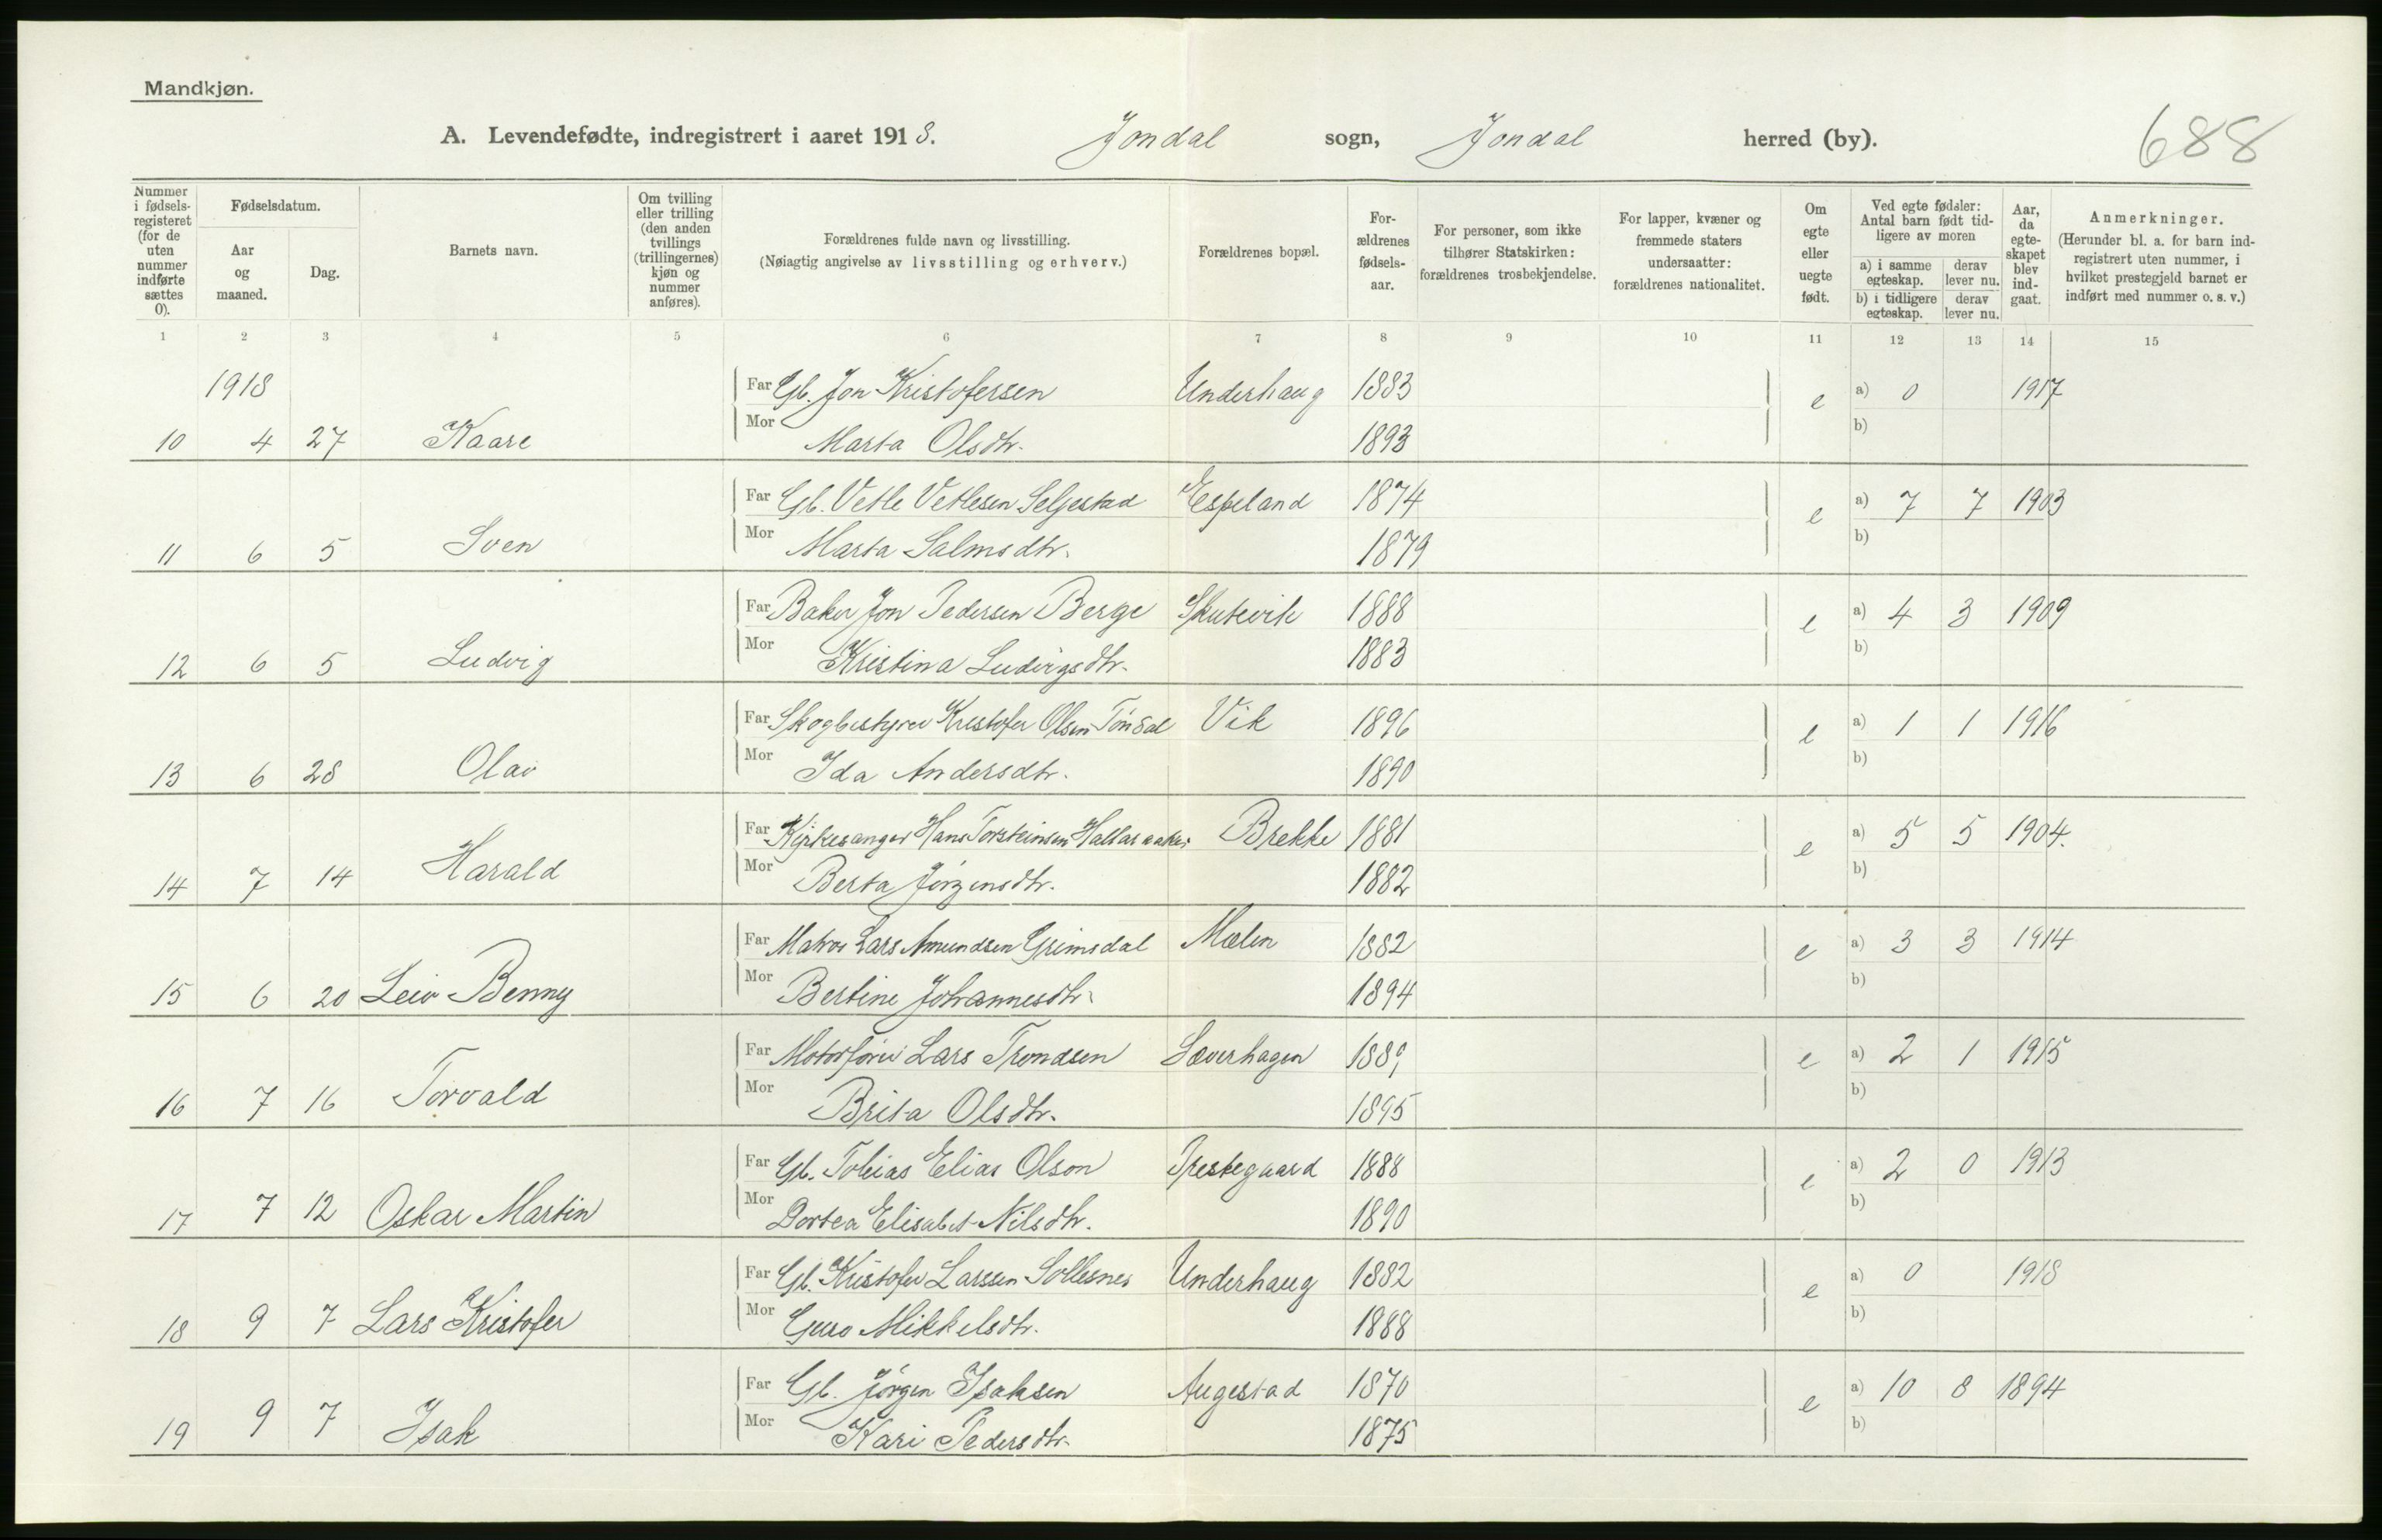 Mandkjøn.
A. Levendefødte, indregistrert i aaret 1918. Jondal sogn, Jondal herred (by). 688
Nummer i fødsels-registeret (for de uten nummer indførte sættes 0).
Fødselsdatum.
Aar og maaned.
Dag.
Barnets navn.
Om tvilling eller trilling (den anden tvillings (trillingernes) kjøn og nummer anføres).
Forældrenes fulde navn og livsstilling.
(Nøiagtig angivelse av livsstilling og erhverv.)
Forældrenes bopæl.
For-ældrenes fødsels-aar.
For personer, som ikke tilhører Statskirken: forældrenes trosbekjendelse.
For lapper, kvæner og fremmede staters undersaatter: forældrenes nationalitet.
Om egte eller uegte født.
Ved egte fødsler: Antal barn født tid-ligere av moren
a) i samme egteskap. derav lever nu.
b) i tidligere egteskap. derav lever nu.
Aar, da egte-skapet blev ind-gaat.
Anmerkninger.
(Herunder bl. a. for barn ind-registrert uten nummer, i hvilket prestegjeld barnet er indført med nummer o. s. v.)
1 2 3 4 5 6 7 8 9 10 11 12 13 14 15
1918 Far Gb. Jon Kristofersen Underhaug 1883 e a) 0 1917
10 4 27 Kaare Mor Marta Olsdtr. 1893 b)
Far Gb. Vetle Vetlesen Seljestad Espeland 1874 e a) 7 7 1903
11 6 5 Sven Mor Marta Salmsdtr. 1879 b)
Far Baker Jon Pedersen Berge Skutevik 1888 e a) 4 3 1909
12 6 5 Ludvig Mor Kristina Ludvigsdtr. 1883 b)
Far Skogbestyrer Kristofer Olsen Tøndal Vik 1896 e a) 1 1 1916
13 6 28 Olav Mor Ida Andersdtr. 1890 b)
Far Kirkesanger Hans Torsteinsen Hallaraaker Brekke 1881 e a) 5 5 1904.
14 7 14 Harald Mor Berta Jørgensdtr. 1882 b)
Far Matros Lars Amundsen Grimsdal Mælen 1882 e a) 3 3 1914
15 6 20 Leiv Benny Mor Bertine Johannesdtr. 1894 b)
Far Motorfører Lars Trondsen Sæverhagen 1889 e a) 2 1 1915
16 7 16 Torvald Mor Brita Olsdtr. 1895 b)
Far Gb. Tobias Elias Olson Prestegaard 1888 e a) 2 0 1913
17 7 12 Oskar Martin Mor Dortea Elisabet Nilsdtr. 1890 b)
Far Gb. Kristofer Larssen Sollesnes Underhaug 1882 e a) 0 1918
18 9 7 Lars Kristofer Mor Guro Mikkelsdtr. 1888 b)
Far Gb. Jørgen Isaksen Augestad 1870 e a) 10 8 1894
19 9 7 Isak Mor Kari Pedersdtr. 1875 b)